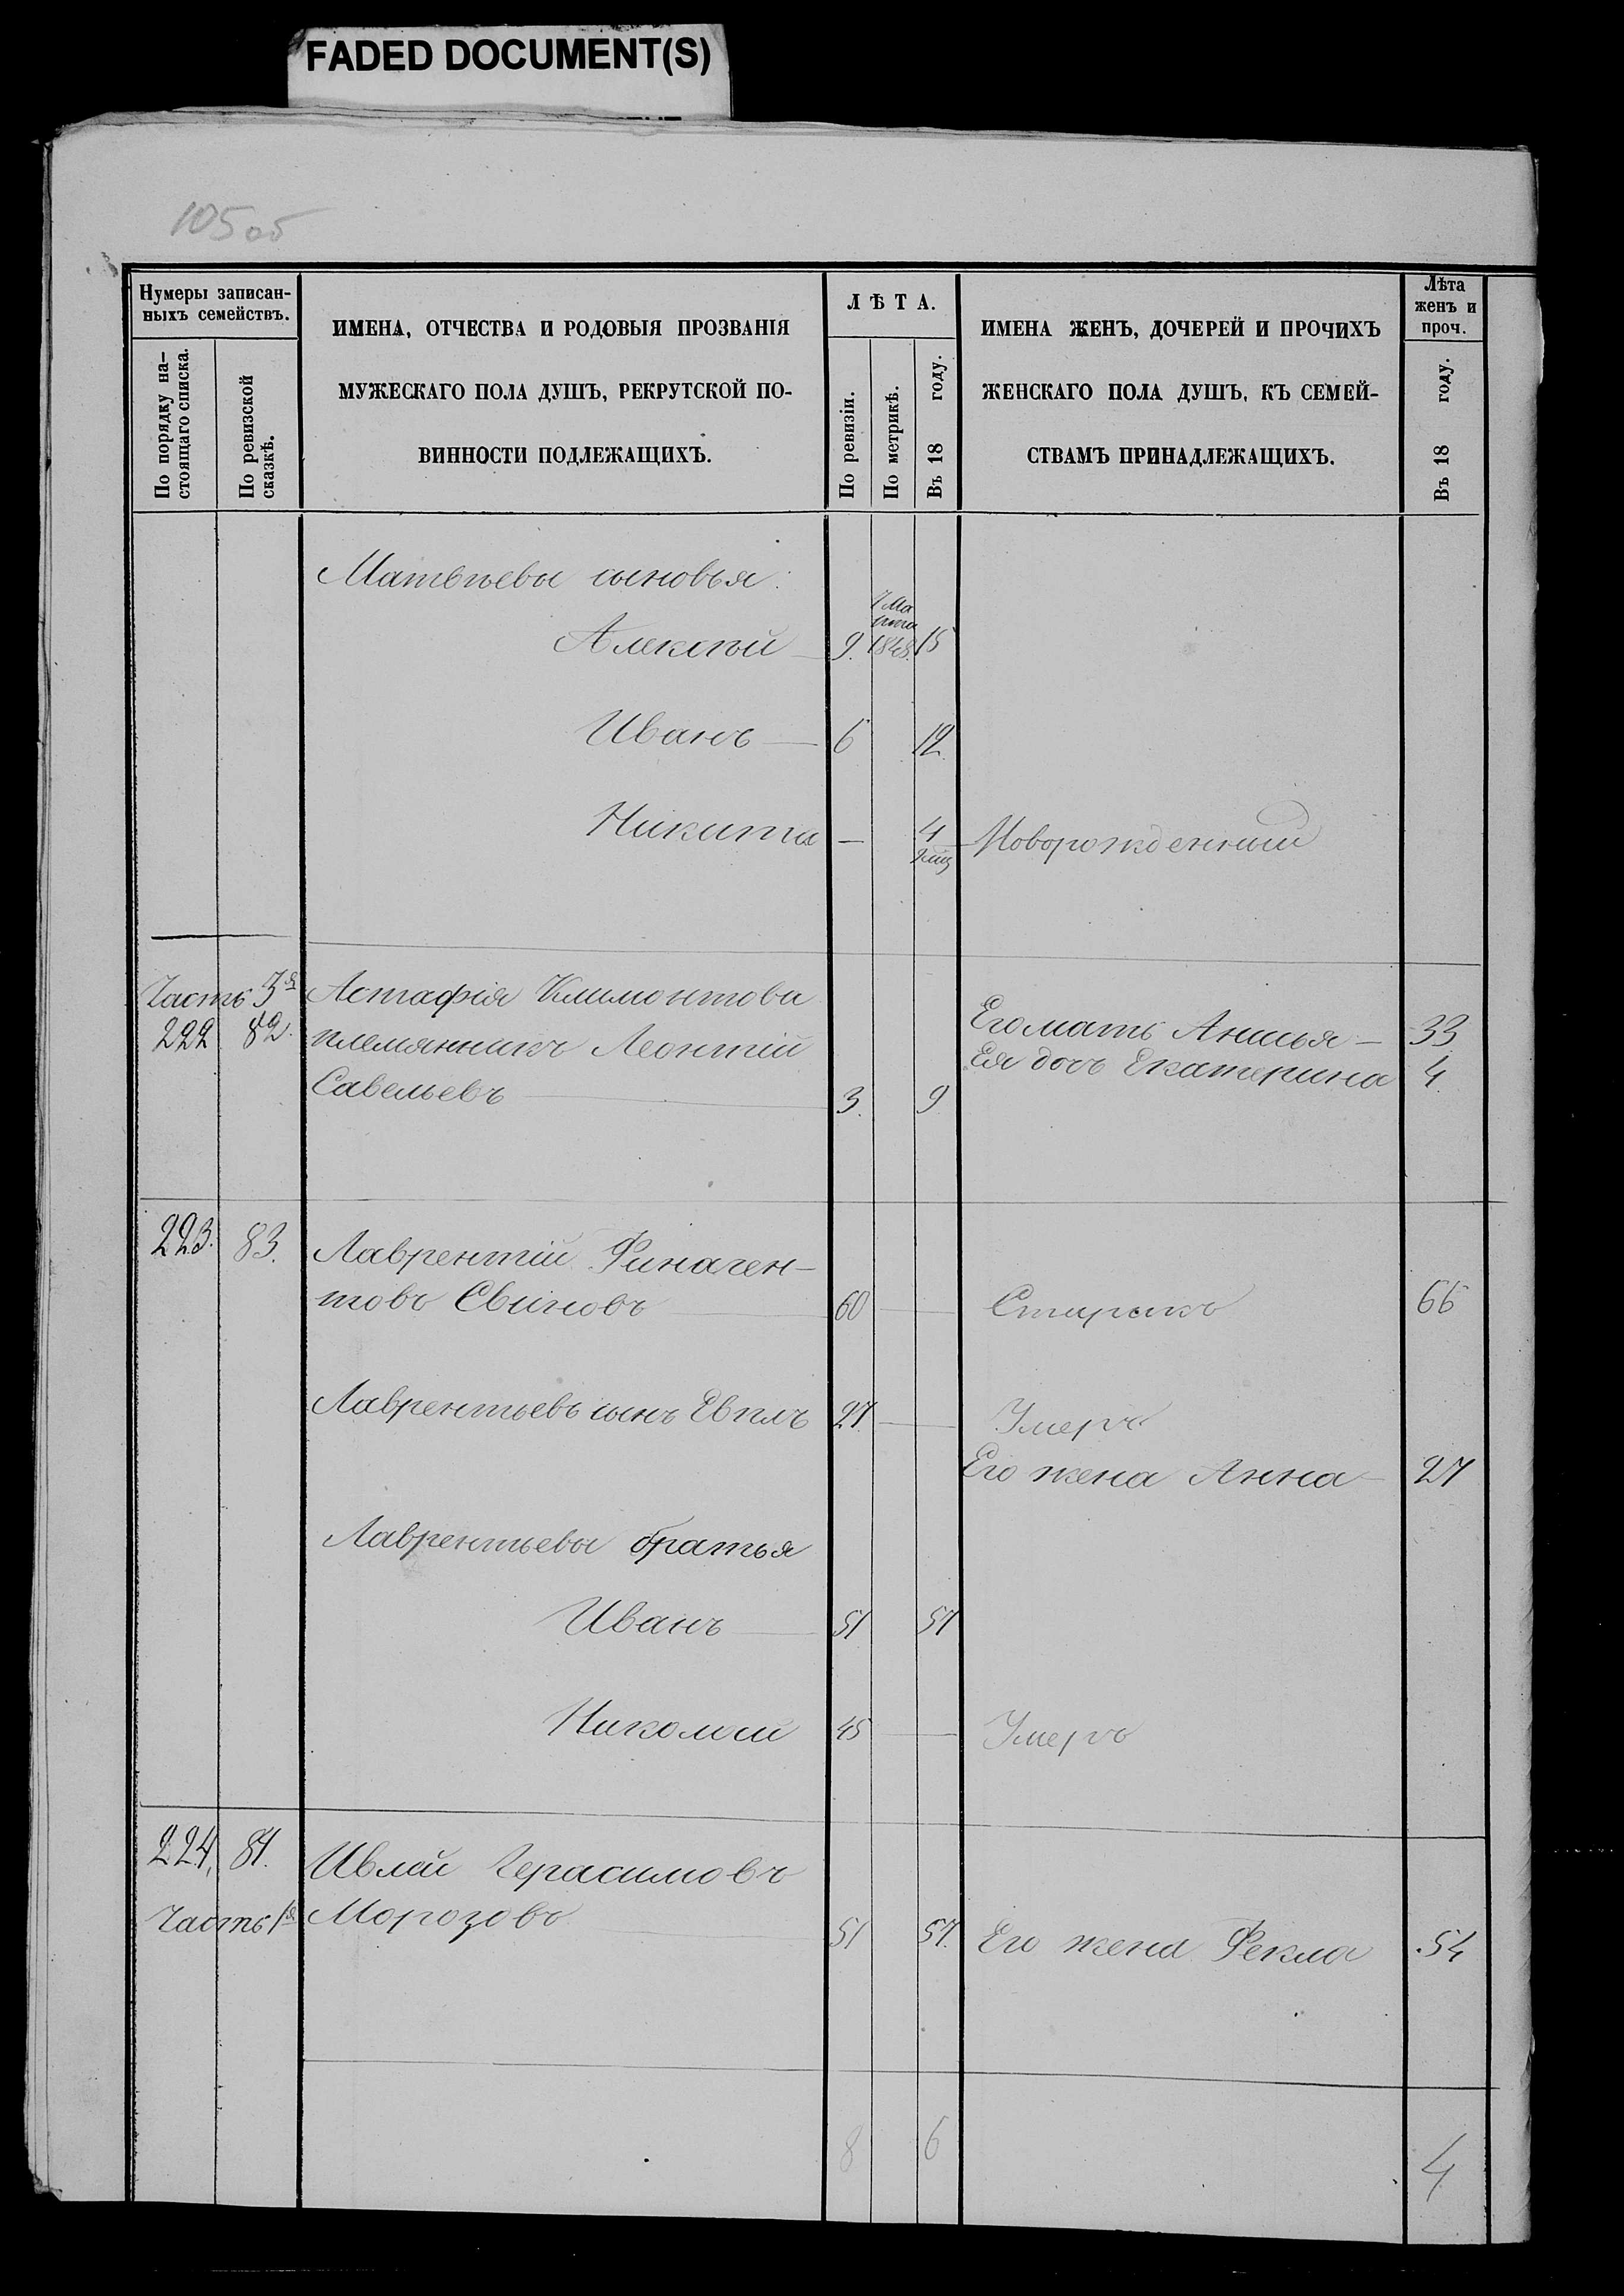 FADED DOCUMENT(S)
105 об
Нумеры записан-
ныхъ семействъ.
По порядку на-
стоящаго списка.
По ревизской
сказкѣ.
ИМЕНА, ОТЧЕСТВА И РОДОВЫЯ ПРОЗВАНІЯ
МУЖЕСКАГО ПОЛА ДУШЪ, РЕКРУТСКОЙ ПО-
ВИННОСТИ ПОДЛЕЖАЩИХЪ.
ЛѢТА.
По ревизіи.
По метрикѣ.
Въ 18 году.
ИМЕНА ЖЕНЪ, ДОЧЕРЕЙ И ПРОЧИХЪ
ЖЕНСКАГО ПОЛА ДУШЪ, КЪ СЕМЕЙ-
СТВАМЪ ПРИНАДЛЕЖАЩИХЪ.
Лѣта
женъ и
проч.
Въ 18 году.
Матвѣевы сыновья:
Алексѣй 9. 1848. 15
Иванъ — 6 12.
Никита — 4 Новорожденный
Часть 3я Астафія Климонтова
222 82. племянникъ Леонтій
Савельевъ — 3. 9
Его мать Анисья — 33
Ея дочь Екатерина 4.
223. 83. Лаврентій Финаген-
товъ Свиновъ 60 — — Старикъ 66
Лаврентьевъ сынъ Евплъ 27 — — Умеръ
Его жена Анна — 27
Лаврентьевы братья
Иванъ — 51 57
Николай 45 — — Умеръ
224, 84. Ивлей Герасимовъ
Часть 1я Морозовъ 51 57. Его жена Фекла 54
8 6 4